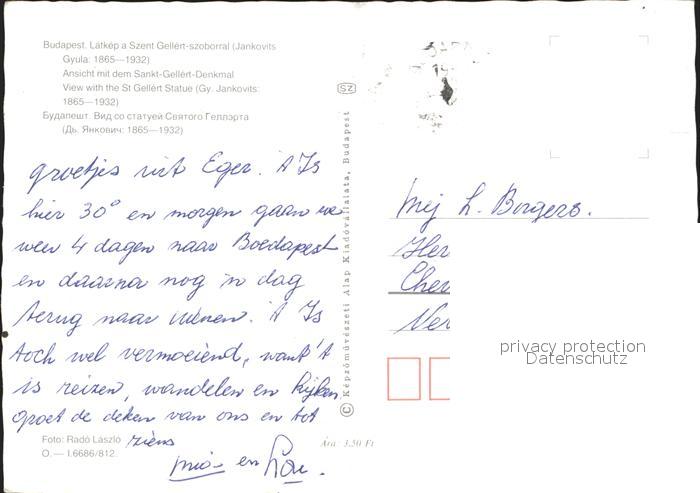 Budapest. Látkép a Szent Gellért-szoborral (Jankovits
Gyula: 1865—1932)
Ansicht mit dem Sankt-Gellért-Denkmal
View with the St Gellért Statue (Gy. Jankovits:
1865—1932)
Будапешт. Вид со статуей Святого Геллэрта
(Дь. Янкович: 1865—1932)
groetjes uit Eger. 't Is
hier 30° en morgen gaan we
weer 4 dagen naar Boedapest
en daarna nog 'n dag
terug naar Wenen. 't Is
toch wel vermoeiend, want 't
is reizen, wandelen en kijken
groet de deken van ons en tot
ziens
en
Foto: Radó László
O. — I.6686/812.
Ára: 3,50 Ft
SZ
© Képzőművészeti Alap Kiadóvállalata, Budapest
Mej L. Borgers.
Her
Chev
Ver
privacy protection
Datenschutz